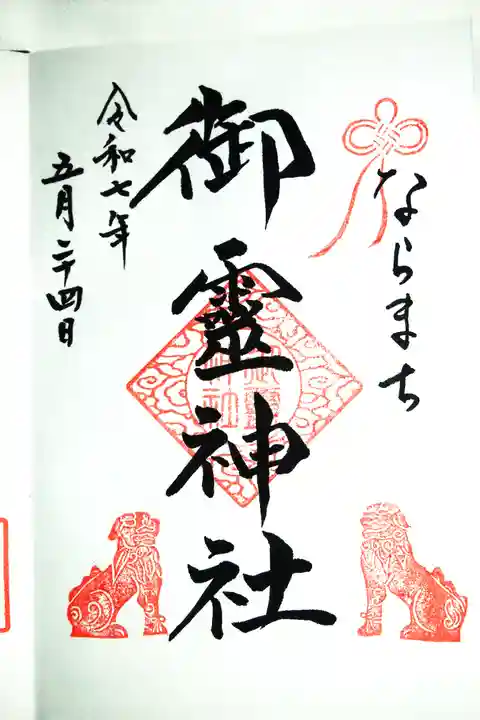 ならまち
御靈神社
令和七年
五月二十四日